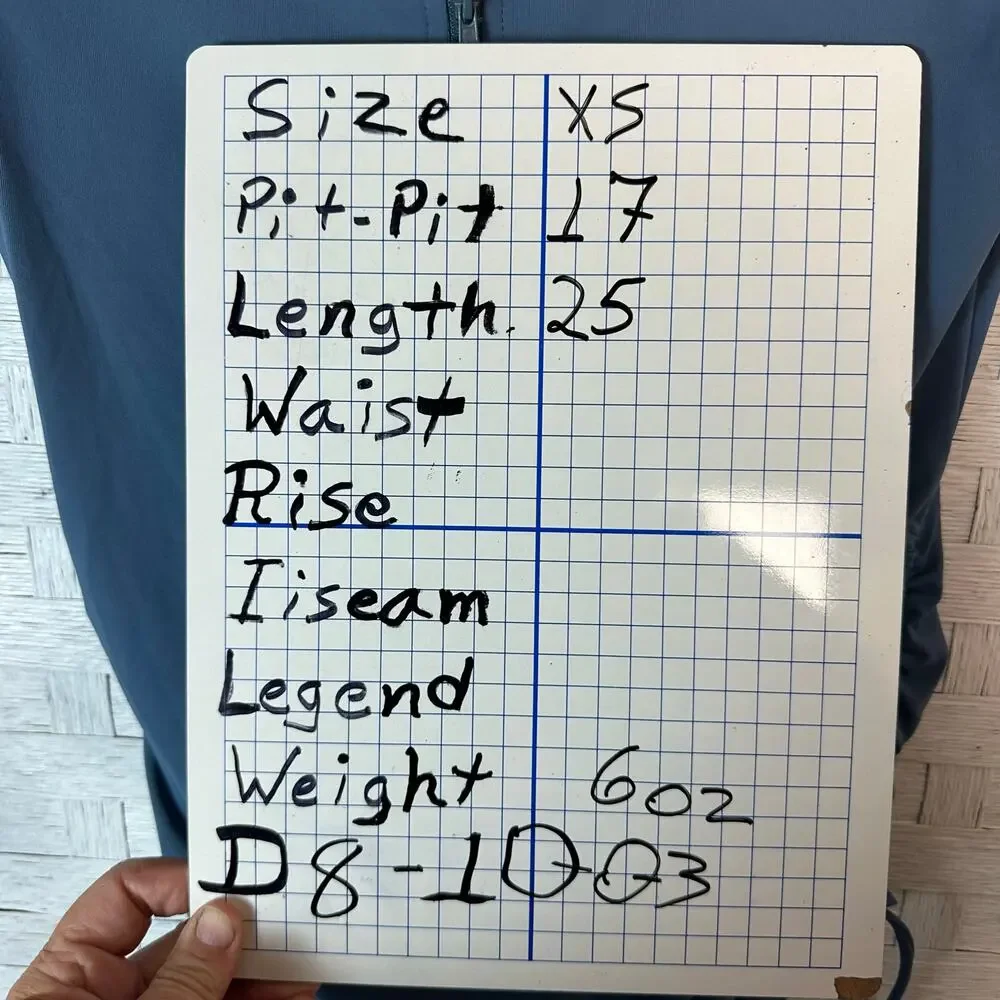 Size XS
Pit-Pit 17
Length. 25
Waist
Rise
Iiseam
Legend
Weight 6oz
D8-10-03